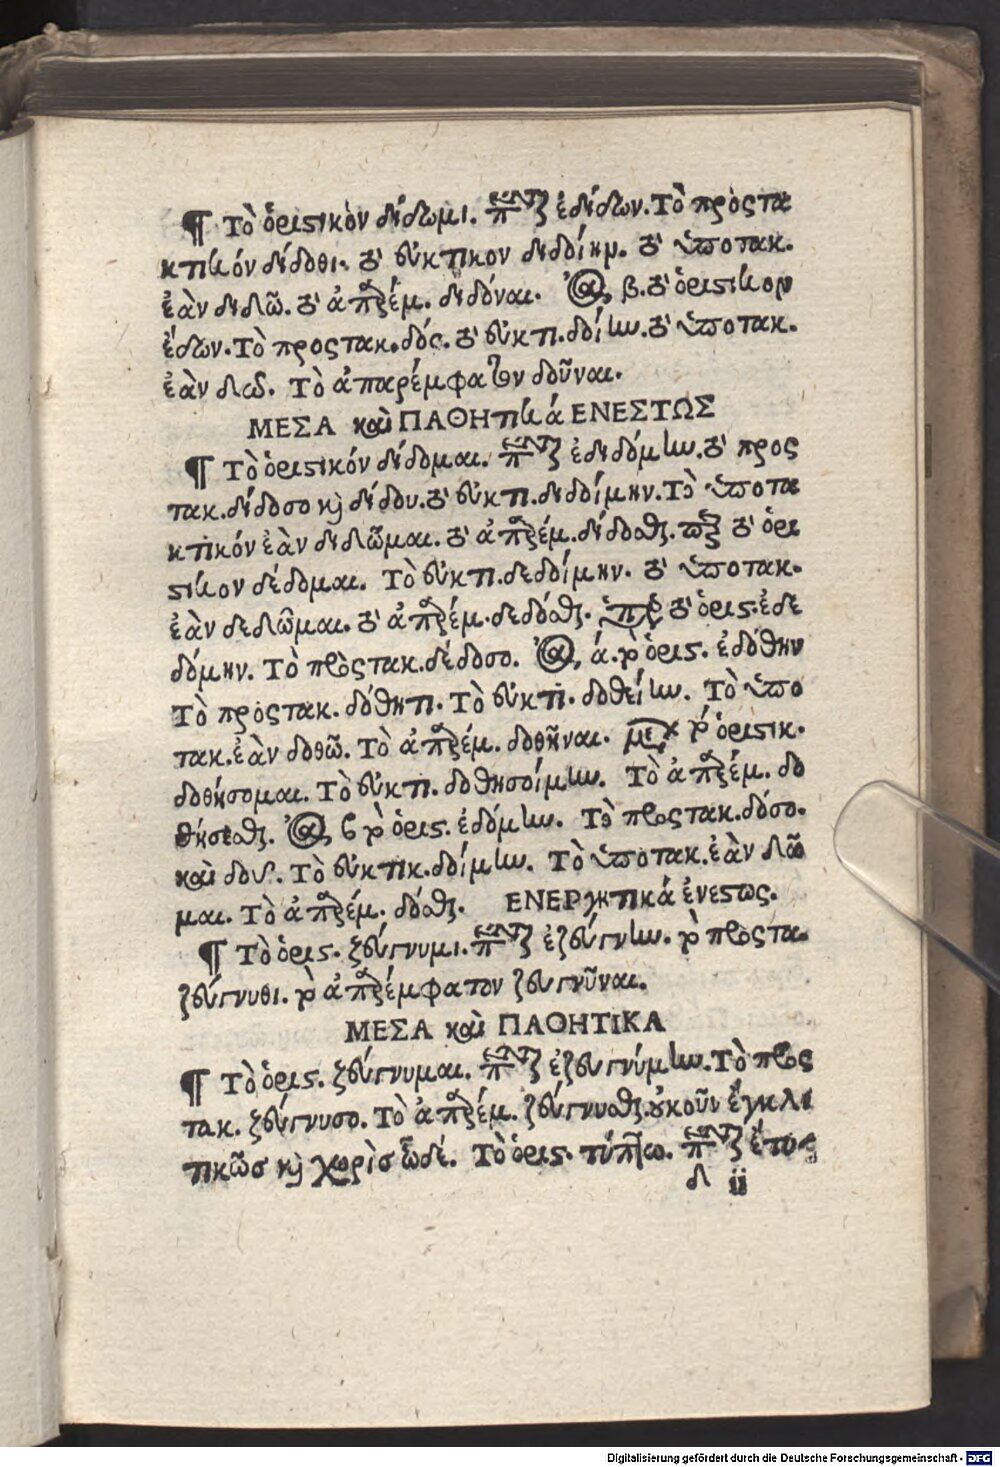 ¶ Τὸ ὁριστικὸν δίδωμι. ἐδίδων. Τὸ προστα
κτικόν δίδοθι. τὸ εὐκτικον διδοίην. τὸ ὑποτακ.
ἐὰν διδῶ. τὸ ἀπαρέμ. διδόναι. β. τὸ ὁριστικον
ἔδων. Τὸ προστακ. δός. τὸ εὐκτι. δοίην. τὸ ὑποτακ.
ἐὰν δῶ. Τὸ ἀπαρέμφατον δοῦναι.
ΜΕΣΑ καὶ ΠΑΘΗτικά ΕΝΕΣΤΩΣ
¶ Τὸ ὁριστικόν δίδομαι. ἐδιδόμην. τὸ προς
τακ. δίδοσο κὶ δίδου. τὸ εὐκτι. διδοίμην. Τὸ ὑποτα
κτικόν ἐὰν διδῶμαι. τὸ ἀπαρέμ. δίδοσθαι. τὸ ὁρι
στικον δέδομαι. Τὸ εὐκτι. δεδοίμην. τὸ ὑποτακ.
ἐὰν δεδῶμαι. τὸ ἀπαρέμ. δεδόσθαι. τὸ ὁρισ. ἐδε
δόμην. Τὸ προστακ. δέδοσο. ά. τὸ ὁρισ. ἐδόθην
Τὸ προστακ. δόθητι. Τὸ εὐκτι. δοθείην. Τὸ ὑπο
τακ. ἐὰν δοθῶ. Τὸ ἀπαρέμ. δοθῆναι. τὸ ὁριστικ.
δοθήσομαι. Τὸ εὐκτι. δοθησοίμην. Τὸ ἀπαρέμ. δο
θήσεσθαι. β τὸ ὁρισ. ἐδόμην. Τὸ προστακ. δόσο.
καὶ δοῦ. Τὸ εὐκτικ. δοίμην. Τὸ ὑποτακ. ἐὰν δῶ
μαι. Τὸ ἀπαρέμ. δόσθαι. ΕΝΕΡγητικά ἐνεστως.
¶ Τὸ ὁρισ. ζεύγνυμι. ἐζεύγνην. τὸ προστα.
ζεύγνυθι. τὸ ἀπαρέμφατον ζευγνῦναι.
ΜΕΣΑ καὶ ΠΑΘΗΤΙΚΑ
¶ Τὸ ὁρισ. ζεύγνυμαι. ἐζευγνύμην. Τὸ προς
τακ. ζεύγνυσο. Τὸ ἀπαρέμ. ζεύγνυσθαι. οὐκοῦν ἔγκλι
τικῶσ κὶ χορὶσ ὧδέ. Τὸ ὁρισ. τύπτω. ἔτυ
δ ii
Digitalisierung gefördert durch die Deutsche Forschungsgemeinschaft - DFG